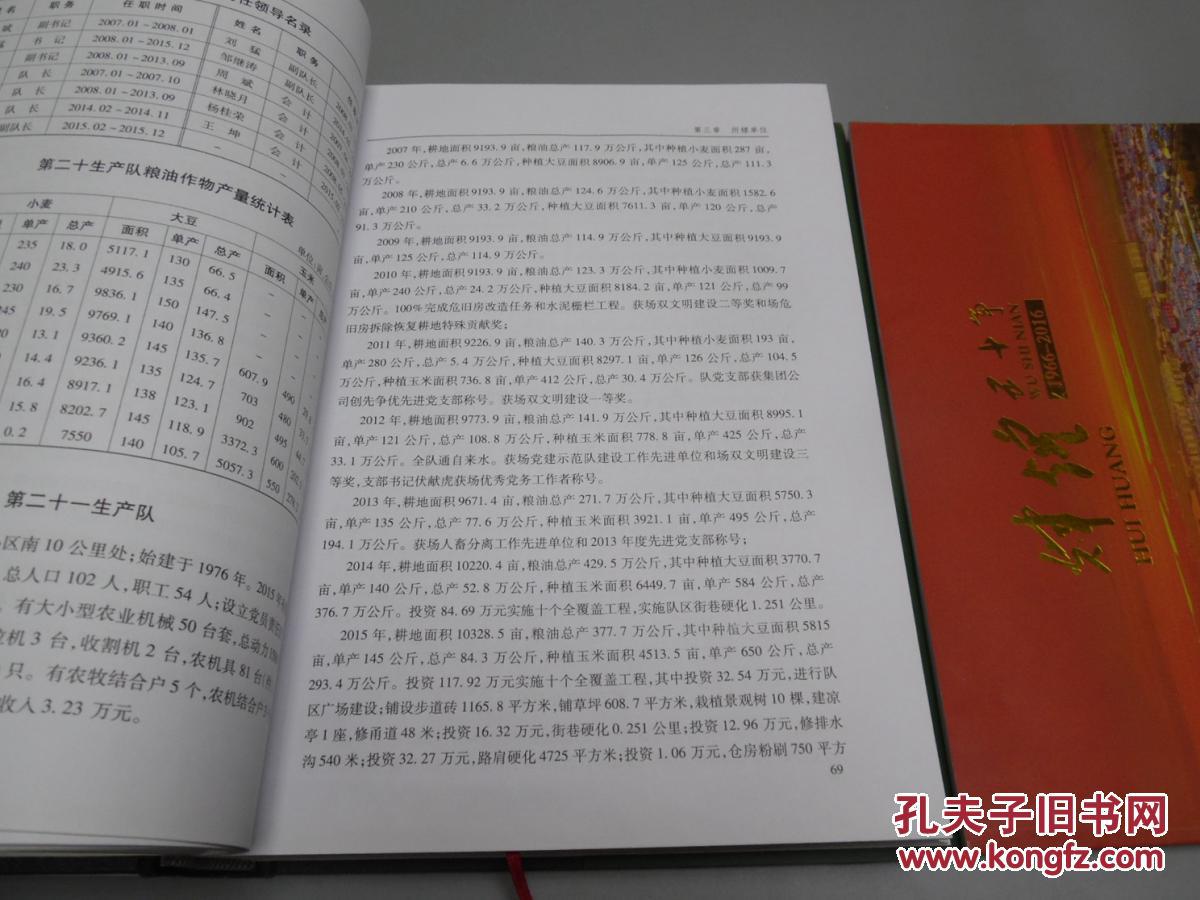 任领导名录
职务 任职时间 姓名 职务
斌 副书记 2007.01-2008.01 刘猛 副队长
书记 2008.01-2015.12 邹继涛 副队长
副书记 2008.01-2013.09 周斌 会计
队长 2007.01-2007.10 林晓月 会计
队长 2008.01-2013.09 杨桂荣 会计
队长 2014.02-2014.11 王坤 会计
副队长 2015.02-2015.12 -
第二十生产队粮油作物产量统计表
小麦 大豆 玉米
单产 总产 面积 单产 总产 面积 单产
235 18.0 5117.1 130 66.5 - -
240 23.3 4915.6 135 66.4 - -
230 16.7 9836.1 150 147.5 - -
245 19.5 9769.1 140 136.8 - -
13.1 9360.2 145 135.7 - -
14.4 9236.1 135 124.7 607.9 490
16.4 8917.1 138 123.1 703 480
15.8 8202.7 145 118.9 902 495
0.2 7550 140 105.7 3372.3 600
5057.3 550
第二十一生产队
区南10公里处;始建于1976年。2015年
总人口102人,职工54人;设立党员责任
。有大小型农业机械50台套,总动力
机3台,收割机2台,农机具81台(
只。有农牧结合户5个,农机结合户
收入3.23万元。
第三章 所辖单位
2007年,耕地面积9193.9亩,粮油总产117.9万公斤,其中种植小麦面积287亩,
单产230公斤,总产6.6万公斤,种植大豆面积8906.9亩,单产125公斤,总产111.3
万公斤。
2008年,耕地面积9193.9亩,粮油总产124.6万公斤,其中种植小麦面积1582.6
亩,单产210公斤,总产33.2万公斤,种植大豆面积7611.3亩,单产120公斤,总产
91.3万公斤。
2009年,耕地面积9193.9亩,粮油总产114.9万公斤,其中种植大豆面积9193.9
亩,单产125公斤,总产114.9万公斤。
2010年,耕地面积9193.9亩,粮油总产123.3万公斤,其中种植小麦面积1009.7
亩,单产240公斤,总产24.2万公斤,种植大豆面积8184.2亩,单产121公斤,总产99
万公斤。100%完成危旧房改造任务和水泥栅栏工程。获场双文明建设二等奖和场危
旧房拆除恢复耕地特殊贡献奖;
2011年,耕地面积9226.9亩,粮油总产140.3万公斤,其中种植小麦面积193亩,
单产280公斤,总产5.4万公斤,种植大豆面积8297.1亩,单产126公斤,总产104.5
万公斤,种植玉米面积736.8亩,单产412公斤,总产30.4万公斤。队党支部获集团公
司创先争优先进党支部称号。获场双文明建设一等奖。
2012年,耕地面积9773.9亩,粮油总产141.9万公斤,其中种植大豆面积8995.1
亩,单产121公斤,总产108.8万公斤,种植玉米面积778.8亩,单产425公斤,总产
33.1万公斤。全队通自来水。获场党建示范队建设工作先进单位和场双文明建设三
等奖,支部书记伏献虎获场优秀党务工作者称号。
2013年,耕地面积9671.4亩,粮油总产271.7万公斤,其中种植大豆面积5750.3
亩,单产135公斤,总产77.6万公斤,种植玉米面积3921.1亩,单产495公斤,总产
194.1万公斤。获场人畜分离工作先进单位和2013年度先进党支部称号;
2014年,耕地面积10220.4亩,粮油总产429.5万公斤,其中种植大豆面积3770.7
亩,单产140公斤,总产52.8万公斤,种植玉米面积6449.7亩,单产584公斤,总产
376.7万公斤。投资84.69万元实施十个全覆盖工程,实施队区街巷硬化1.251公里。
2015年,耕地面积10328.5亩,粮油总产377.7万公斤,其中种植大豆面积5815
亩,单产145公斤,总产84.3万公斤,种植玉米面积4513.5亩,单产650公斤,总产
293.4万公斤。投资117.92万元实施十个全覆盖工程,其中投资32.54万元,进行队
区广场建设;铺设步道砖1165.8平方米,铺草坪608.7平方米,栽植景观树10棵,建凉
亭1座,修甬道48米;投资16.32万元,街巷硬化0.251公里;投资12.96万元,修排水
沟540米;投资32.27万元,路肩硬化4725平方米;投资1.06万元,仓房粉刷750平方
69
辉煌五十年
HUI HUANG
WU SHI NIAN
1966-2016
孔夫子旧书网
www.kongfz.com